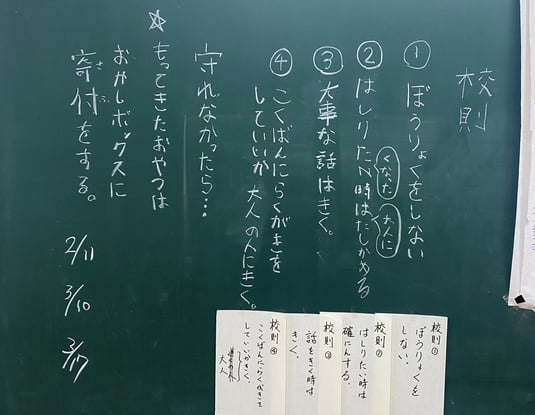 校則
① ぼうりょくをしない
② はしりたい時はたしかめる
くなった
大人に
③ 大事な話はきく。
④ こくばんにらくがきを
していいか 大人の人にきく。
守れなかったら…
☆ もってきたおやつは
おかしボックスに
寄付をする。
きふ
2/11
3/10
3/17
校則①
ぼうりょくを
しない。
校則②
はしりたい時は
確にんする。
校則③
話をきく時は
きく。
校則④
こくばんにらくがきを
していいかきく。
大人